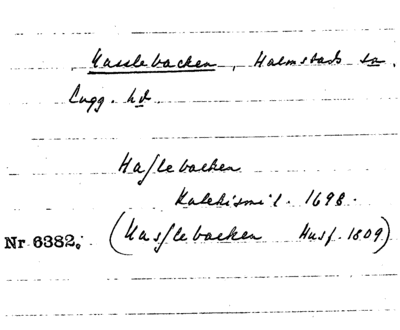 Hasslebacken, Halmstads sn.
Lugg. hd
Haſlebacken
Katekismil. 1698.
Nr 6382. (Hasſlebacken Husf. 1809)